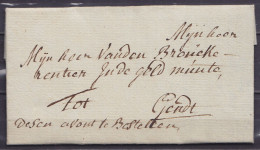 Mijn heer
Mijn heer Vanden Broucke
rentier In de gold munte,
Tot Gendt
Desen avont te Bestellen,